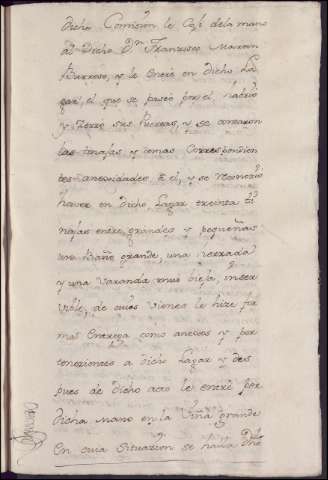 dicho Comision le Coji dela mano
al Dicho Dn Francisco Martin
Barroso, y le Entré en dicho La
gar, el que se paseo por el, habrio
y Zerro sus Puertas, y se contaron
las tinajas y demas Correspondien
tes anexidades a el, y se reconocio
haver en dicho Lagar treinta ti
najas entre grandes y pequeñas
un Baño grande, una
y una Varanda mui bieja, inser
vible, de cuios vienes le hize for
mal Entrega como anexos y per
tenezientes a dicho Lagar y des
pues de dicho acto le entré por
dicha mano en la Viña grande
En cuia Situacion se halla dho